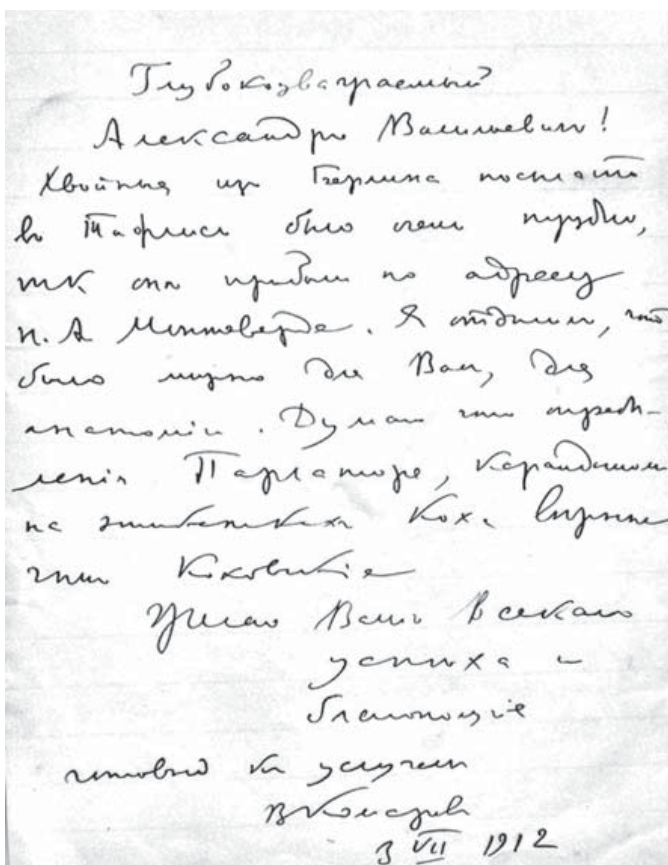 Глубокоуважаемый
Александръ Васильевичъ!
Хвойныя изъ Берлина послать
въ Тифлисъ было очень трудно,
тк они прибыли по адресу
Н. А Монтеверде. Я отдалил, что
было нужно для Васъ, для
анатоміи. Думаю что опредѣ-
ленія Парлаторе, карандашомъ
на этикеткахъ Коха вѣрнѣе
чѣмъ Коховскія
Желаю Вамъ всякаго
успѣха и
благополучія
готовый къ услугамъ
ВКомаровъ
3 VII 1912